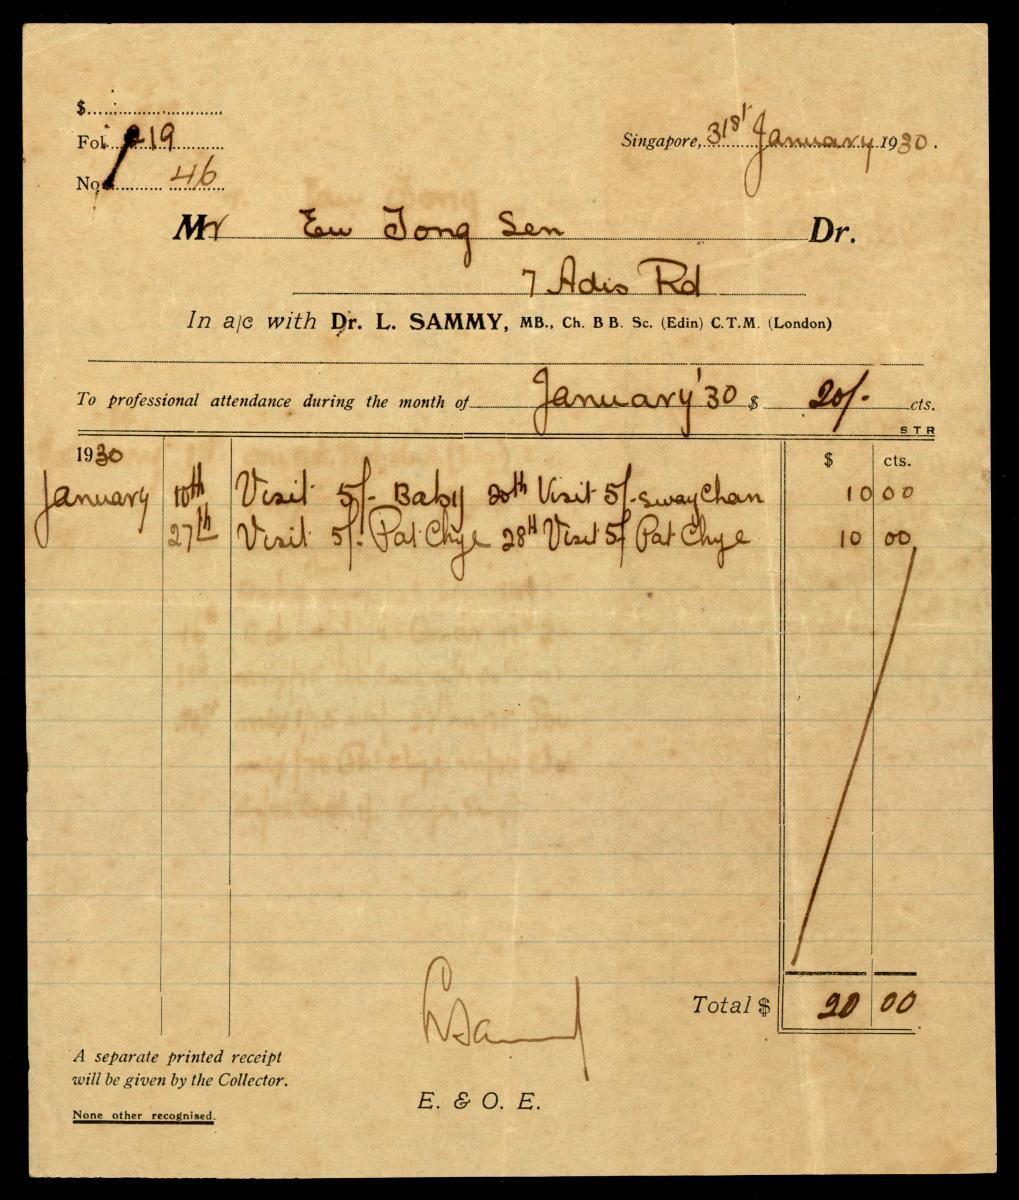 $
Fol. 219
No. 46
Singapore, 31st January 1930.
Mr Eu Tong Sen Dr.
7 Adis Rd
In a/c with Dr. L. SAMMY, MB., Ch. B B. Sc. (Edin) C.T.M. (London)
To professional attendance during the month of January '30 $ 20/- cts.
S T R
1930 $ cts.
January 10th Visit 5/- Baby 20th Visit 5/- Sway Chan 10 00
27th Visit 5/- Pat Chye 28th Visit 5/ Pat Chye 10 00
Total $ 20 00
L Sammy
A separate printed receipt
will be given by the Collector.
E. & O. E.
None other recognised.